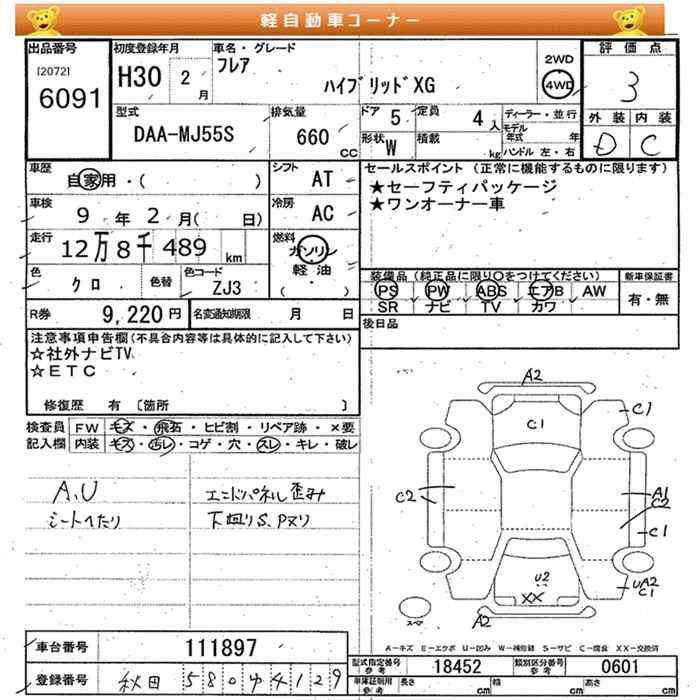 軽自動車コーナー
出品番号
[2072]
6091
初度登録年月
H30 2 月
車名・グレード
フレア
ハイブリッドXG
2WD
4WD
評価点
3
外装 内装
D C
型式
DAA-MJ55S
排気量
660 CC
ドア 5
定員 4 人
形状 W
積載 kg
ディーラー・並行
モデル年式 年
ハンドル 左・右
車歴
自家用・( )
シフト
AT
車検
9 年 2 月( 日)
冷房
AC
走行
12万8千489 km
燃料
ガソリン
軽油
( )
色
クロ
色替
色コード
ZJ3
R券 9,220円
名変通知期限 月 日
セールスポイント (正常に機能するものに限ります)
★セーフティパッケージ
★ワンオーナー車
装備品 (純正品に限り○をつけてください)
PS PW ABS エアB AW
SR ナビ TV カワ
新車保証書
有・無
後日品
注意事項申告欄(不具合内容等は具体的に記入して下さい)
☆社外ナビTV
☆ETC
修復歴 有 〔箇所 〕
検査員記入欄
FW キズ・飛石・ヒビ割・リペア跡・×要
内装 キズ・汚レ・コゲ・穴・スレ・キレ・破レ
A、U
シートへたり
エンドパネル歪み
下回りS、Pヌリ
A2
C1
C1
C2
A1
C2
C1
U2
XX
UA2
C1
A2
スペア
A-キズ E-エクボ U-凹み W-補修跡 S-サビ C-腐食 XX-交換済
車台番号 111897
登録番号 秋田 580 や 4129
型式指定番号 参考 18452
類別区分番号 参考 0601
車庫証明用 参考 長さ cm 幅 cm 高さ cm